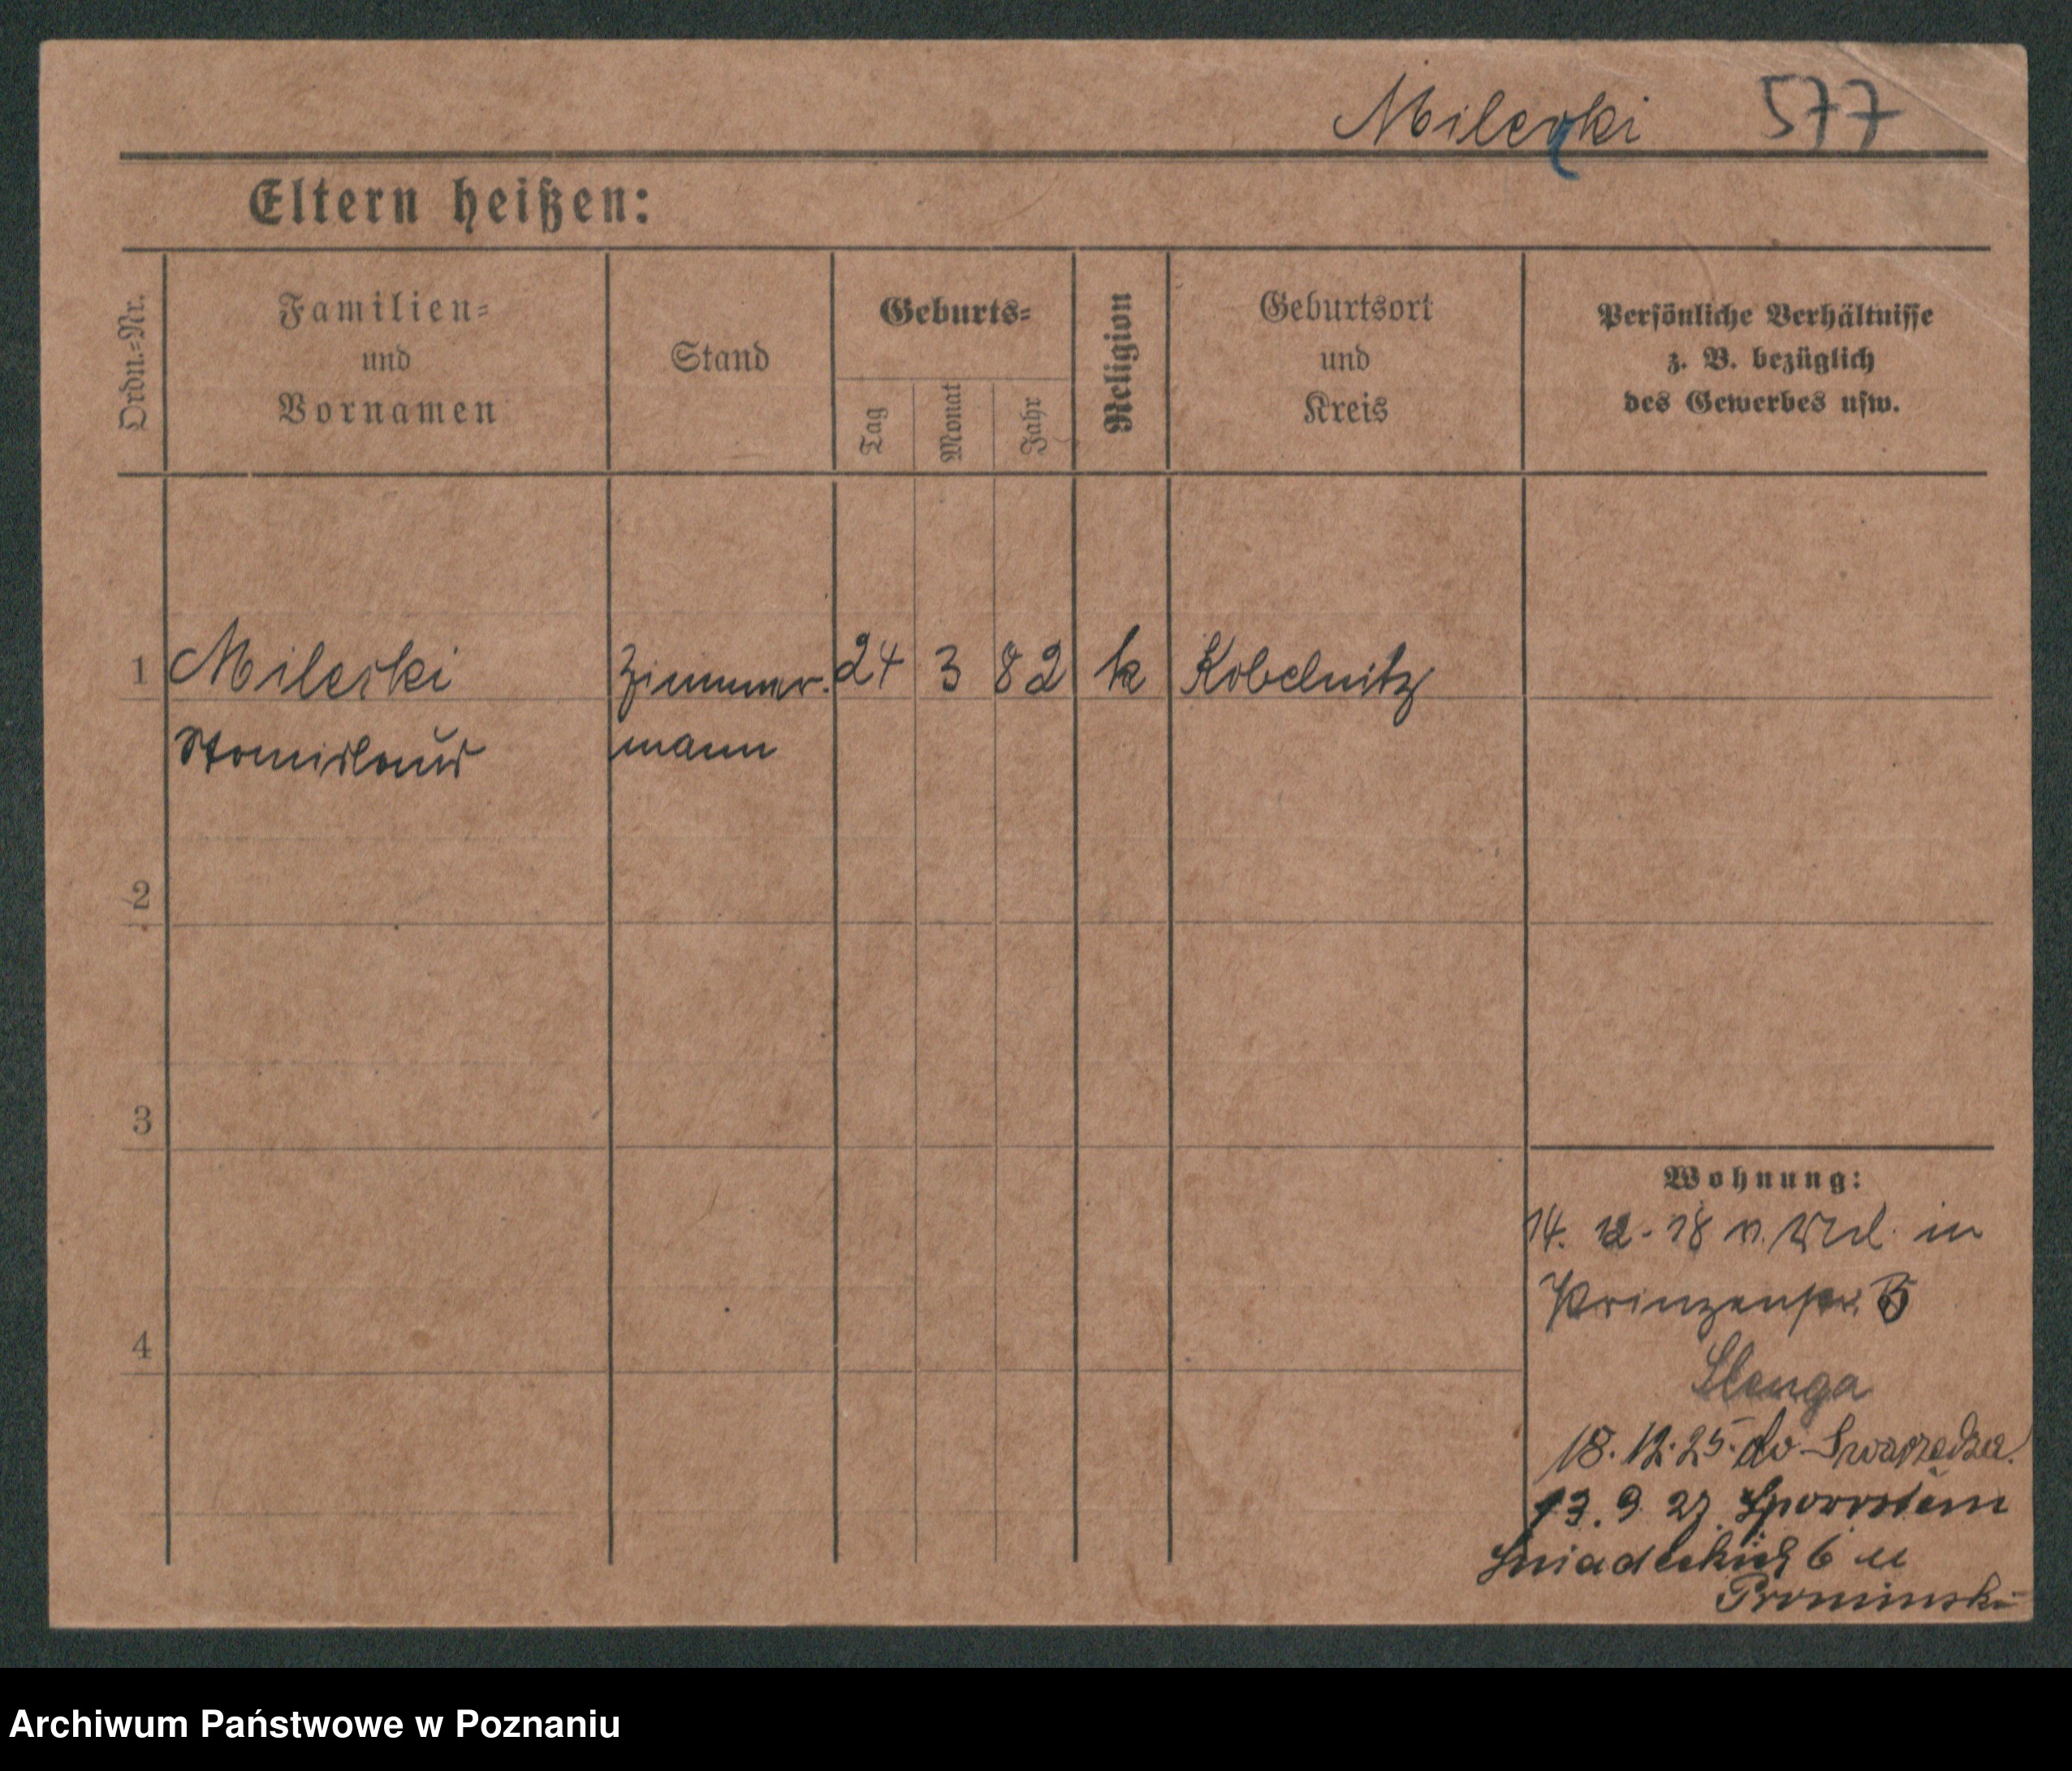 Milecki 577
Eltern heißen:
Ordn.=Nr.
Familien=
und
Vornamen
Stand
Geburts=
Tag
Monat
Jahr
Religion
Geburtsort
und
Kreis
Persönliche Verhältnisse
z. B. bezüglich
des Gewerbes usw.
1 Milecki Zimmer- 24 3 82 k Kobelnitz
Stanislaus mann
2
3
4
Wohnung:
14. 12. 18 v. in
Prinzenstr. 5
18. 12. 25. do Swarzędza.
13. 9. 27. spowrotem
Śniadeckich 6 u
Promińsk
Archiwum Państwowe w Poznaniu